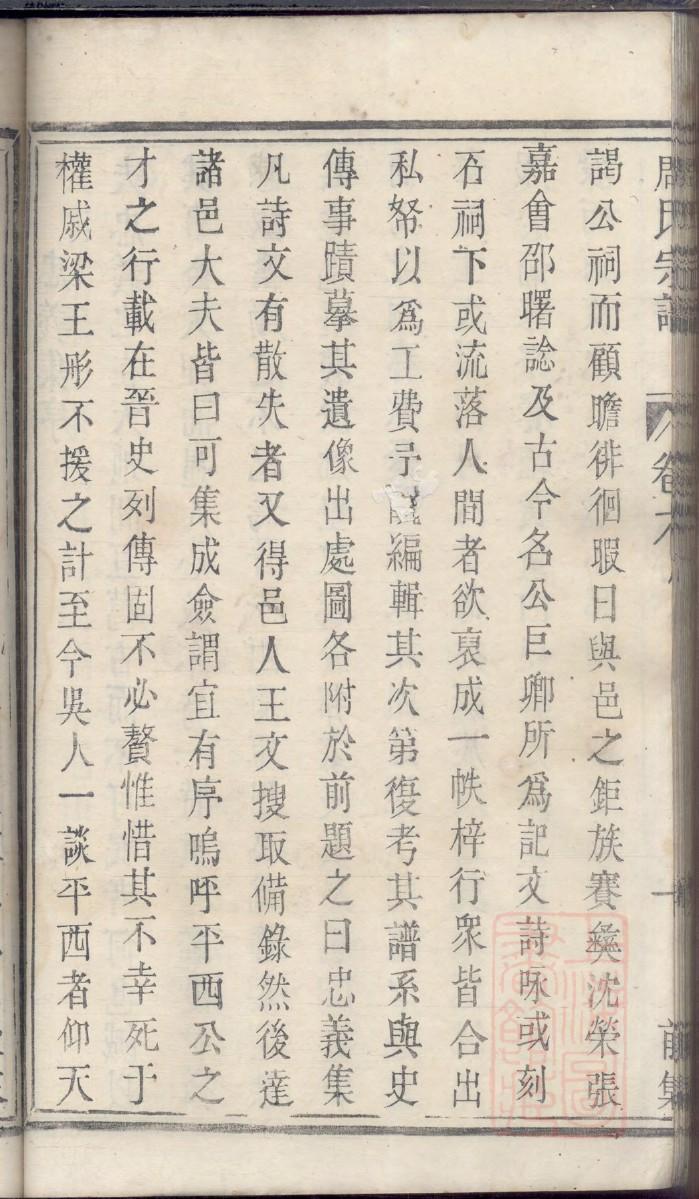 周氏宗譜 卷六 十 前集
謁公祠而顧瞻徘徊暇日與邑之鉅族賽彝沈榮張
嘉會邵曙諗及古今名公巨卿所爲記文詩咏或刻
石祠下或流落人間者欲裒成一帙梓行衆皆合出
私帑以爲工費予編輯其次第復考其譜系與史
傳事蹟摹其遺像出處圖各附於前題之曰忠義集
凡詩文有散失者又得邑人王文搜取備錄然後達
諸邑大夫皆曰可集成僉謂宜有序嗚呼平西公之
才之行載在晉史列傳固不必贅惟惜其不幸死于
權戚梁王彤不援之計至今吳人一談平西者仰天